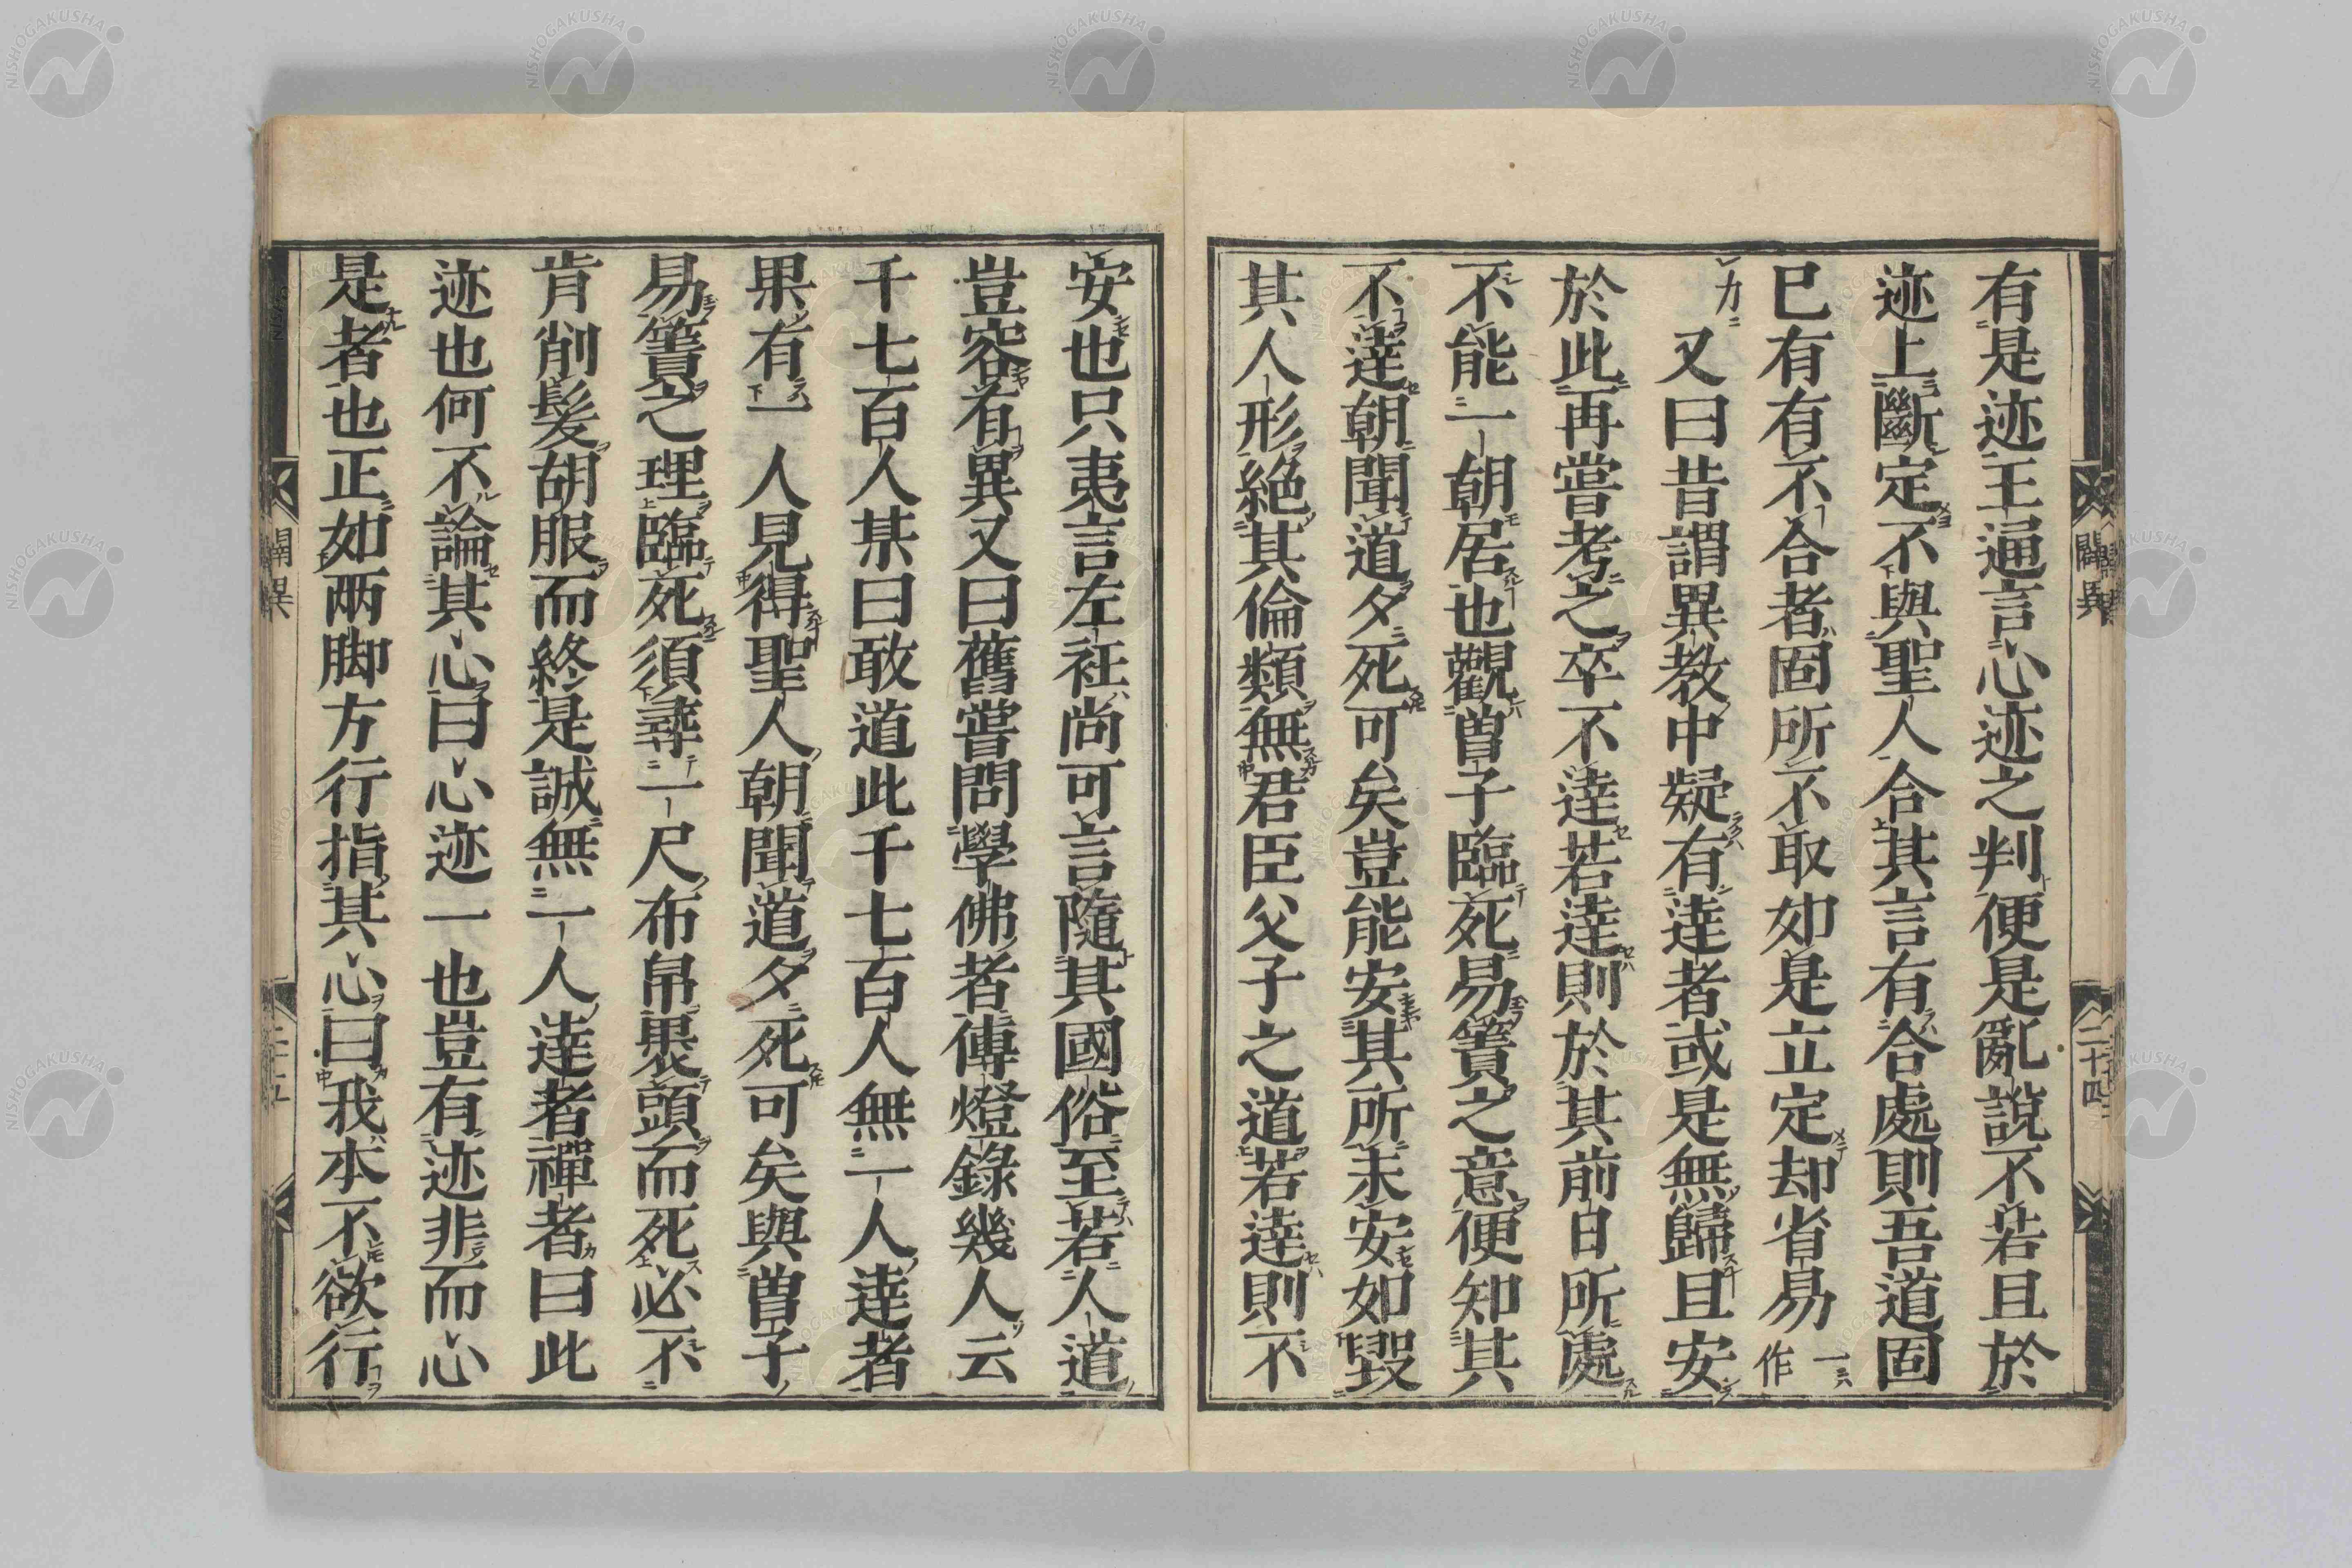 有是迹王通言心迹之判便是亂說不若且於
迹上斷定不與聖人合其言有合處則吾道固
已有有不合者固所不取如是立定却省易一作
力
又曰昔謂異教中疑有達者或是無歸且安
於此再嘗考之卒不達若達則於其前日所處
不能一朝居也觀曾子臨死易簀之意便知其
不達朝聞道夕死可矣豈能安其所未安如毀
其人形絕其倫類無君臣父子之道若達則不
闢異
二十四
安也只夷言左衽尚可言隨其國俗至若人道
豈容有異又曰舊嘗問學佛者傳燈錄幾人云
千七百人某曰敢道此千七百人無一人達者
果有一人見得聖人朝聞道夕死可矣與曾子
易簀之理臨死須尋一尺布帛裹頭而死必不
肯削髮胡服而終是誠無一人達者禪者曰此
迹也何不論其心曰心迹一也豈有迹非而心
是者也正如兩脚方行指其心曰我本不欲行
闢異
NISHOGAKUSHA